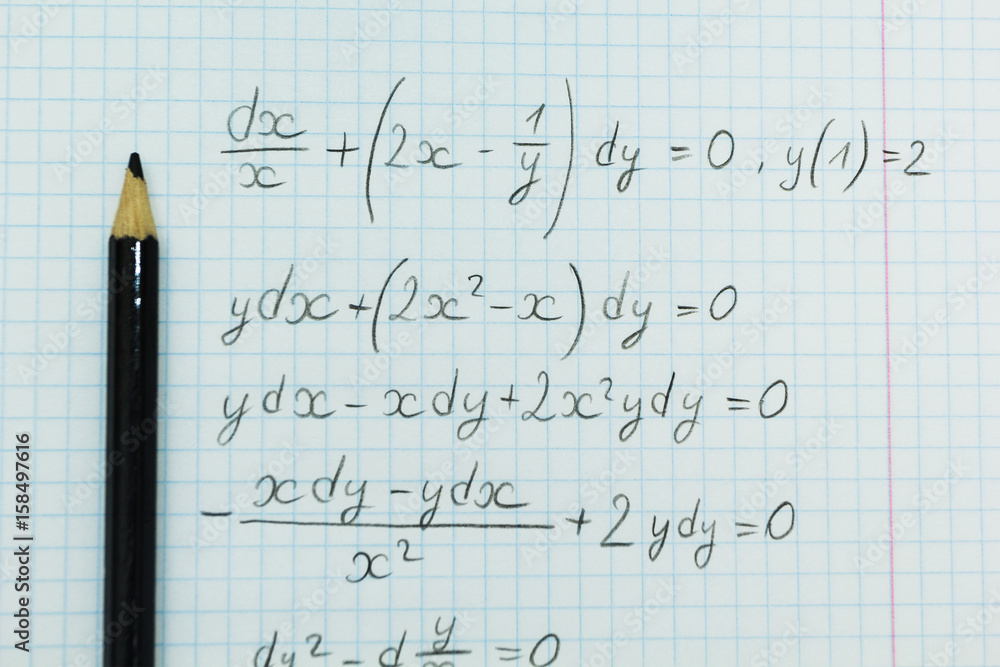 dx/x + (2x - 1/y) dy = 0, y(1) = 2
ydx + (2x² - x) dy = 0
ydx - xdy + 2x²ydy = 0
- (xdy - ydx)/x² + 2ydy = 0
dy² - d y/x = 0
Adobe Stock | #158497616